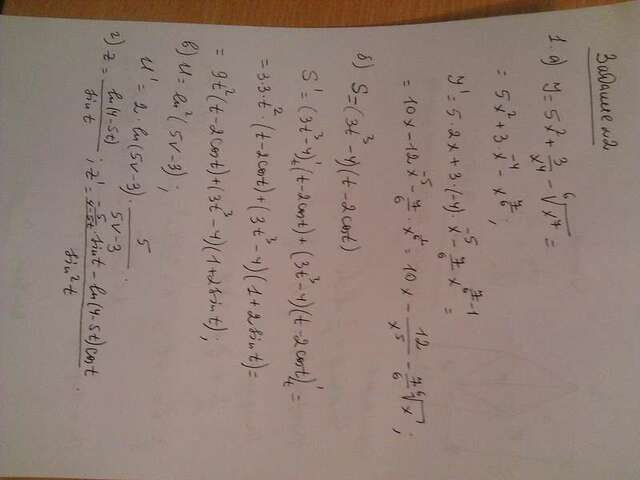 Задание №2
1. а) y = 5x² + 3/x⁴ - ⁶√x⁷ =
= 5x² + 3·x⁻⁴ - x^(7/6);
y' = 5·2x + 3·(-4)·x⁻⁵ - 7/6 x^(7/6-1) =
= 10x - 12x⁻⁵ - 7/6·x^(1/6) = 10x - 12/x⁵ - 7/6 ⁶√x;
б) S = (3t³-4)(t-2cost)
S' = (3t³-4)'ₜ(t-2cost) + (3t³-4)(t-2cost)'ₜ =
= 3·3·t²·(t-2cost) + (3t³-4)(1+2sint) =
= 9t²(t-2cost) + (3t³-4)(1+2sint);
в) u = ln²(5v-3);
u' = 2·ln(5v-3)·5/(5v-3);
г) z = ln(4-5t)/sint; z' = (-5/(4-5t)·sint - ln(4-5t)cost)/sin²t.